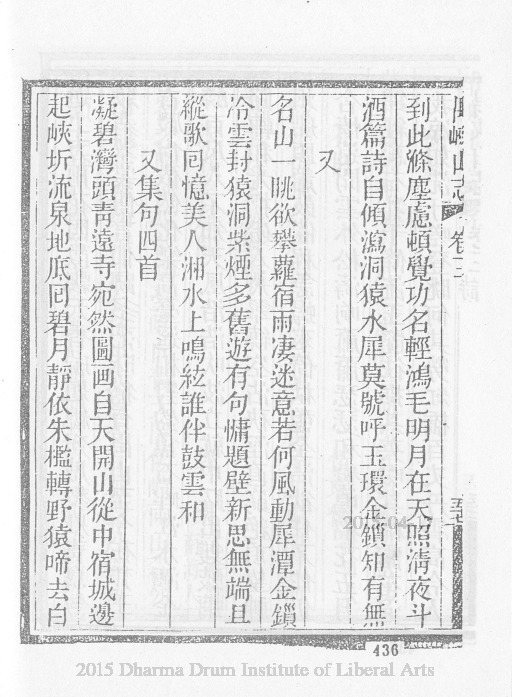 山志 卷三
到此滌塵慮頓覺功名輕鴻毛明月在天照淸夜斗
酒篇詩自傾瀉洞猿水犀莫號呼玉環金鎖知有無
又
名山一眺欲攀蘿宿雨凄迷意若何風動犀潭金鎖
冷雲封猿洞紫煙多舊遊有句慵題壁新思無端且
縱歌囘憶美人湘水上鳴絃誰伴鼓雲和
又集句四首
凝碧灣頭靑遠寺宛然圖画自天開山從中宿城邊
起峽圻流泉地底囘碧月靜依朱檻轉野猿啼去白
436
2015 Dharma Drum Institute of Liberal Arts